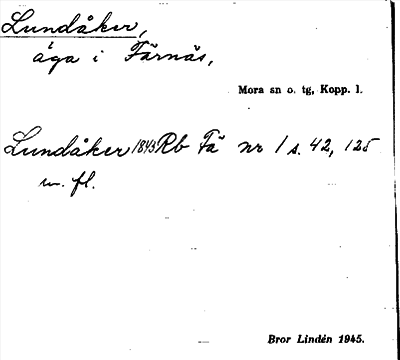 Lundåker,
äga i Färnäs,
Mora sn o. tg, Kopp. l.
Lundåker 1843 Rb Fä nr 1 s. 42, 125
m. fl.
Bror Lindén 1945.